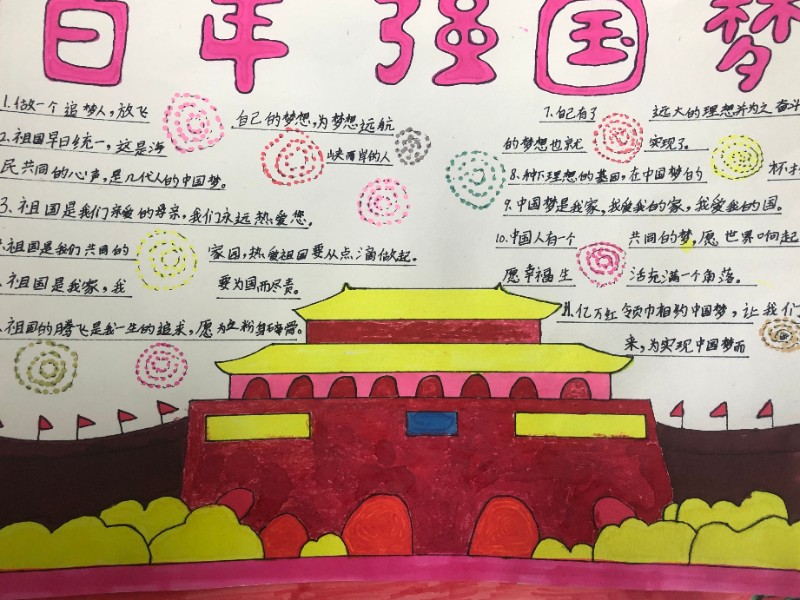 百年强国梦
1.做一个追梦人,放飞 自己的梦想,为梦想远航
2.祖国早日统一,这是海 峡两岸的人
民共同的心声,是几代人的中国梦。
3.祖国是我们亲爱的母亲,我们永远热爱您.
祖国是我们共同的 家园,热爱祖国要从点滴做起.
祖国是我家,我 要为国而尽责。
祖国的腾飞是我一生的追求,愿为之粉身碎骨。
7.自己有了 远大的理想并为之奋斗
的梦想也就 实现了.
8.种下理想的基因,在中国梦的
9.中国梦是我家,我爱我的家,我爱我的国.
10.中国人有一个 共同的梦,愿世界响起
愿幸福生 活充满一个角落.
11.亿万红领巾相约中国梦,让我们
来,为实现中国梦而